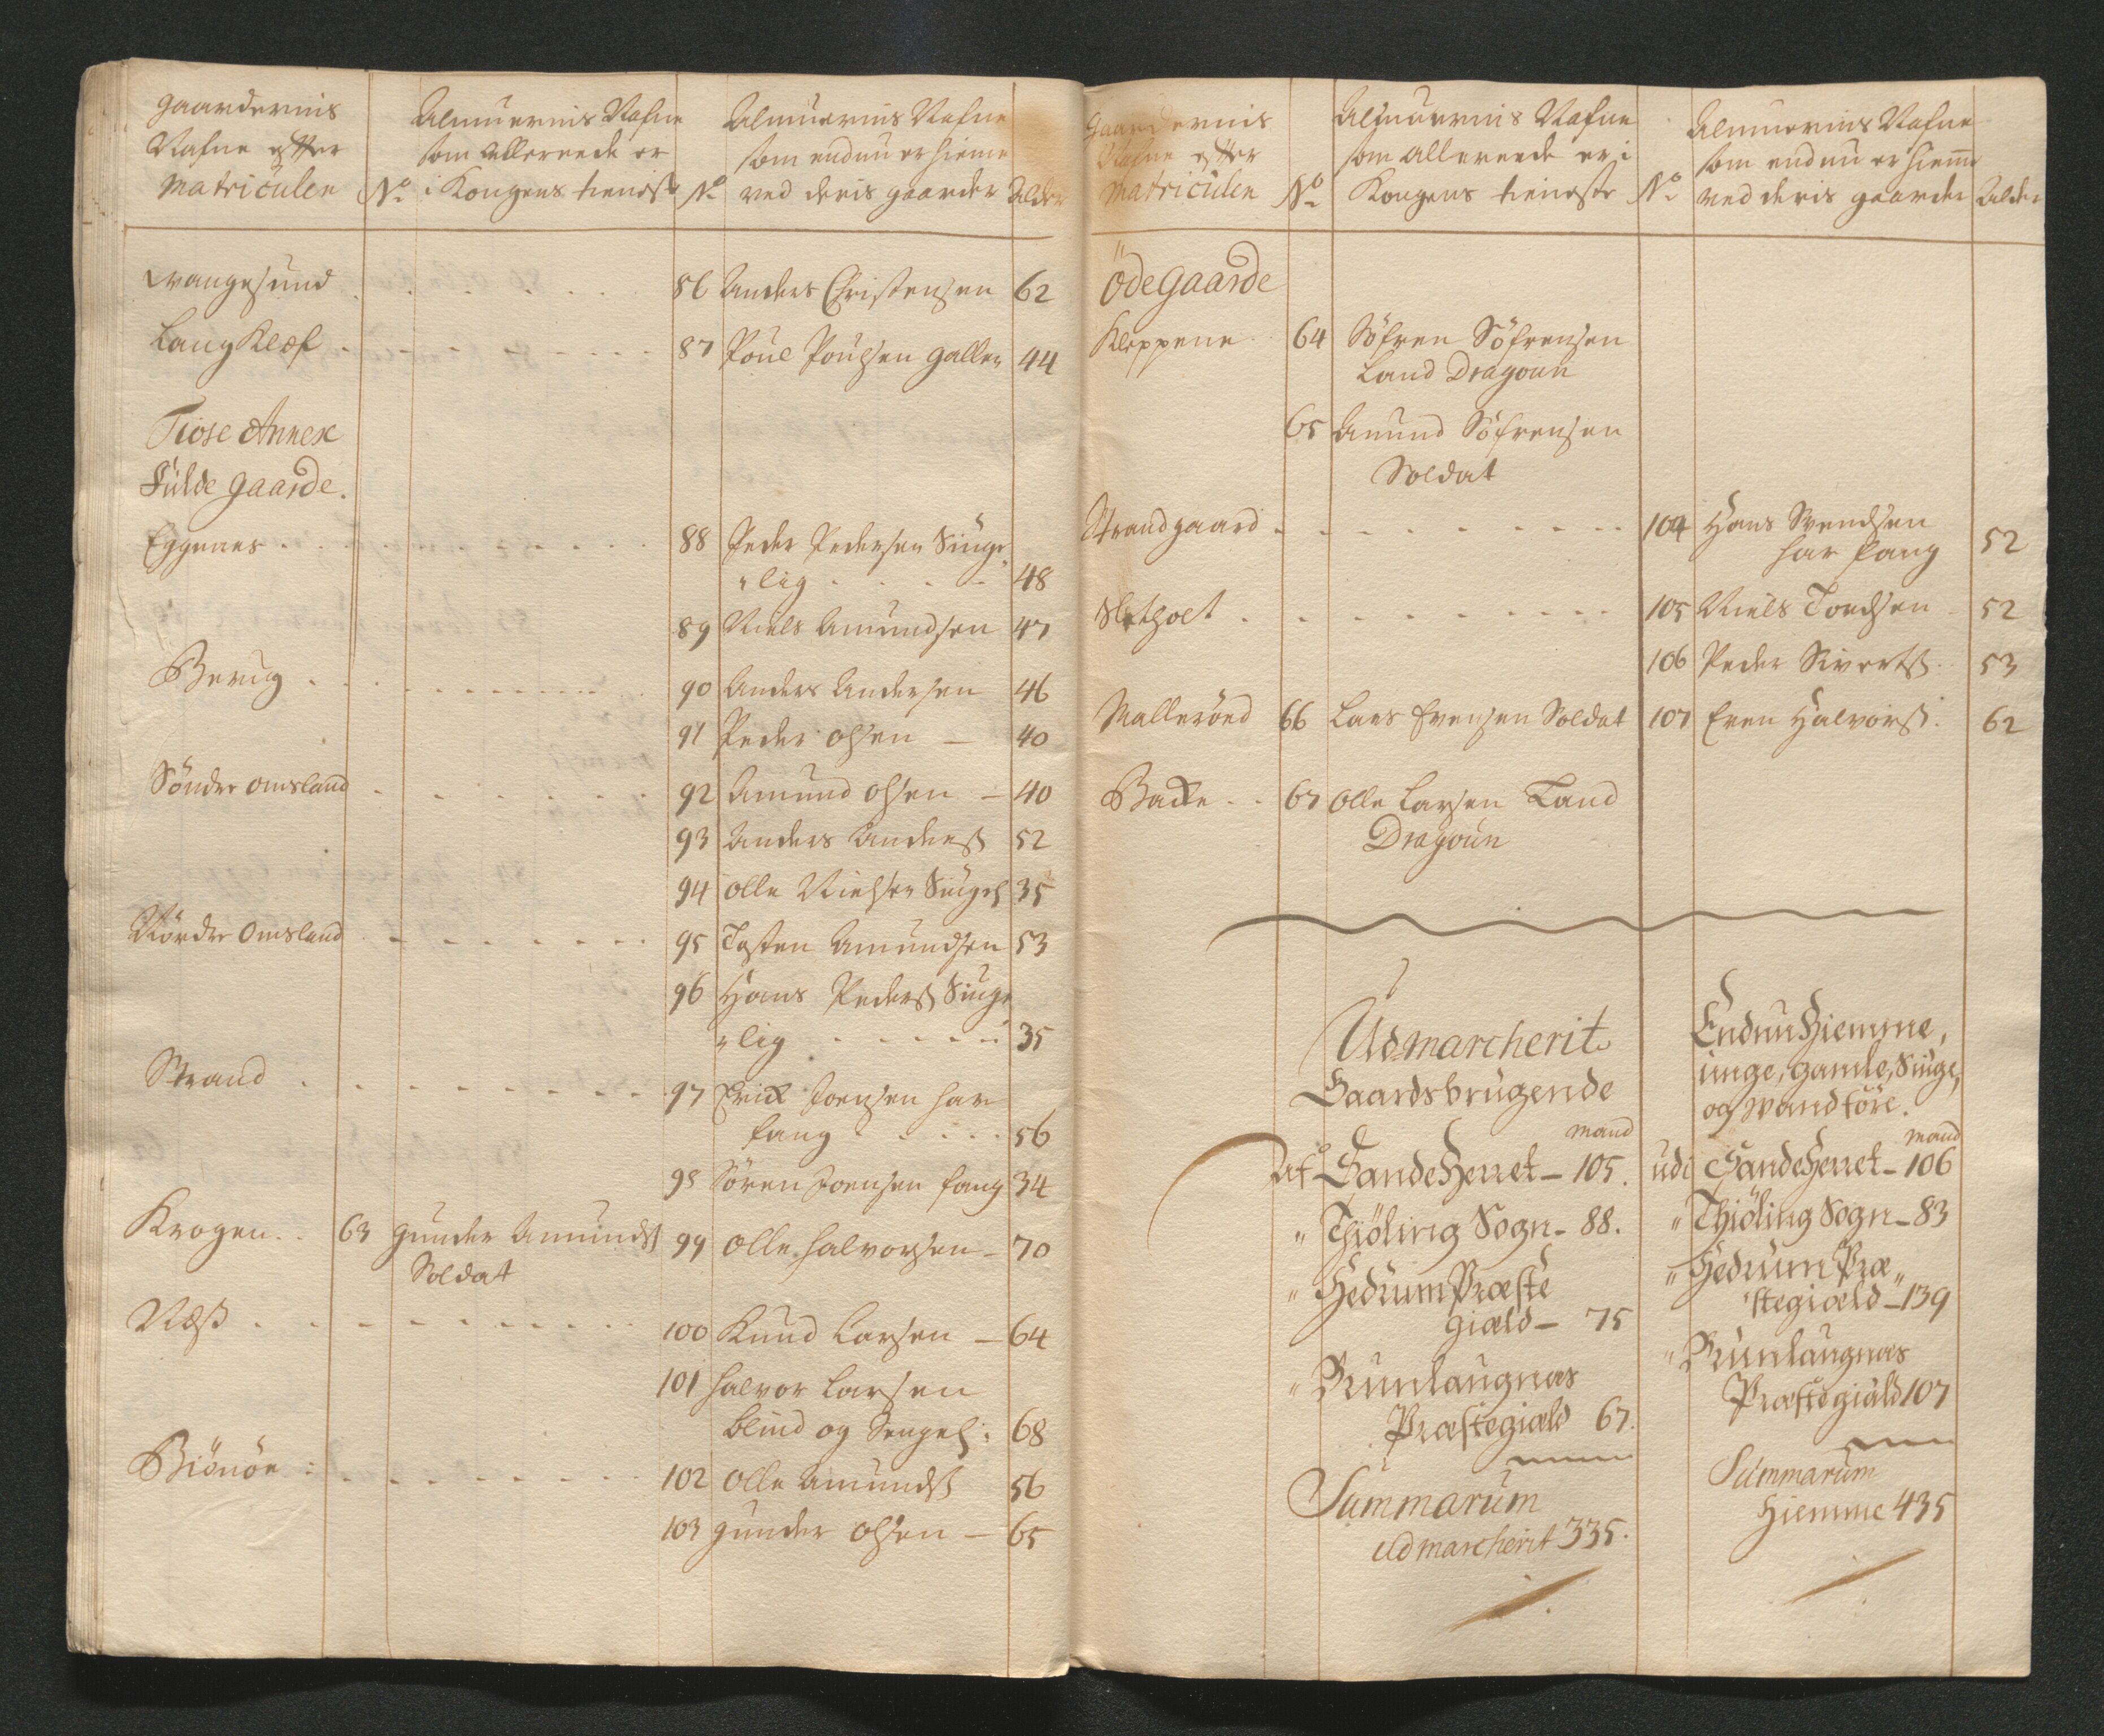 Gaardernis
Nafne efter
Matriculen
No
Almuernis Nafne
som allereede er
i Kongens tieniste
No
Almuernis Nafne
som endnu er hieme
ved deris gaarder
Alder
Wrangesund 86 Anders Christensen 62
Langkleof 87 Poul Poulsen gallen 44
Tiose Annex
Fulde gaarde.
Eggenes 88 Peder Pedersen Siuge
"lig 48
89 Niels Amundsen 47
Berug 90 Anders Andersen 46
91 Peder Olsen – 40
Sönder Omsland 92 Amund Olsen – 40
93 Anders Anderss 52
94 Olle Nielsen Siugel 35
Nörder Omsland 95 Tosten Amundsen 53
96 Hans Pederss Siuge
"lig 35
Strand 97 Erick Joensen har
fang 56
98 Sören Joensen fang 34
Krogen 63 Gunder Amundss 99 Olle Halvorsen – 70
Soldat
Næss 100 Knud Larsen – 64
101 Halvor Larsen
blind og Sengel: 68
Biönöe 102 Olle Amundss 56
103 Gunder Olsen – 65
Gaardernis
Nafne efter
Matriculen
No
Almuernis Nafne
som allereede er i
Kongens tieniste
No
Almuernis Nafne
som endnu er hieme
ved deris gaarder
Alder
ödegaarde
Kleppene 64 Söfren Söfrensen
Land Dragoun
65 Amund Söfrensen
Soldat
Strandgaard 104 Hans Svendsen
har fang 52
Sletholt 105 Niels Tordsen 52
106 Peder Sivertss. 53
Malleröed 66 Lars Evensen Soldat 107 Even Halvorss. 62
Backe 67 Olle Larsen Land
Dragoun
Udmarcherit
Gaardsbrugende
mand
Af Sandeherret – 105.
" Thiöling Sogn – 88.
" Hedrum Præste
giæld – 75
" Brunlaugnæs
Præstegiæld 67.
Summarum
Udmarcherit 335.
Endnu Hiemme,
unge, gamle, Siuge,
og vandföre.
mand
udi Sandeherret – 106
" Thiöling Sogn – 83
" Hedrum Præ„
"stegiæld – 139
" Brunlaugnæs
Præstegiæld 107
Summarum
Hiemme 435